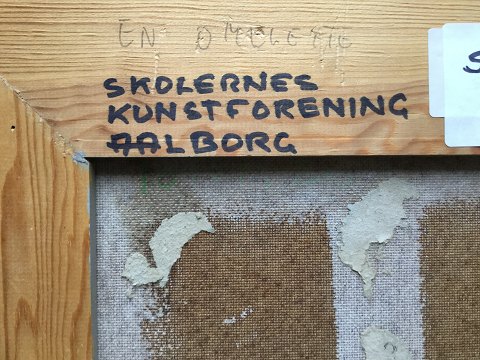 EN OMELETTE
SKOLERNES
KUNSTFORENING
AALBORG
S